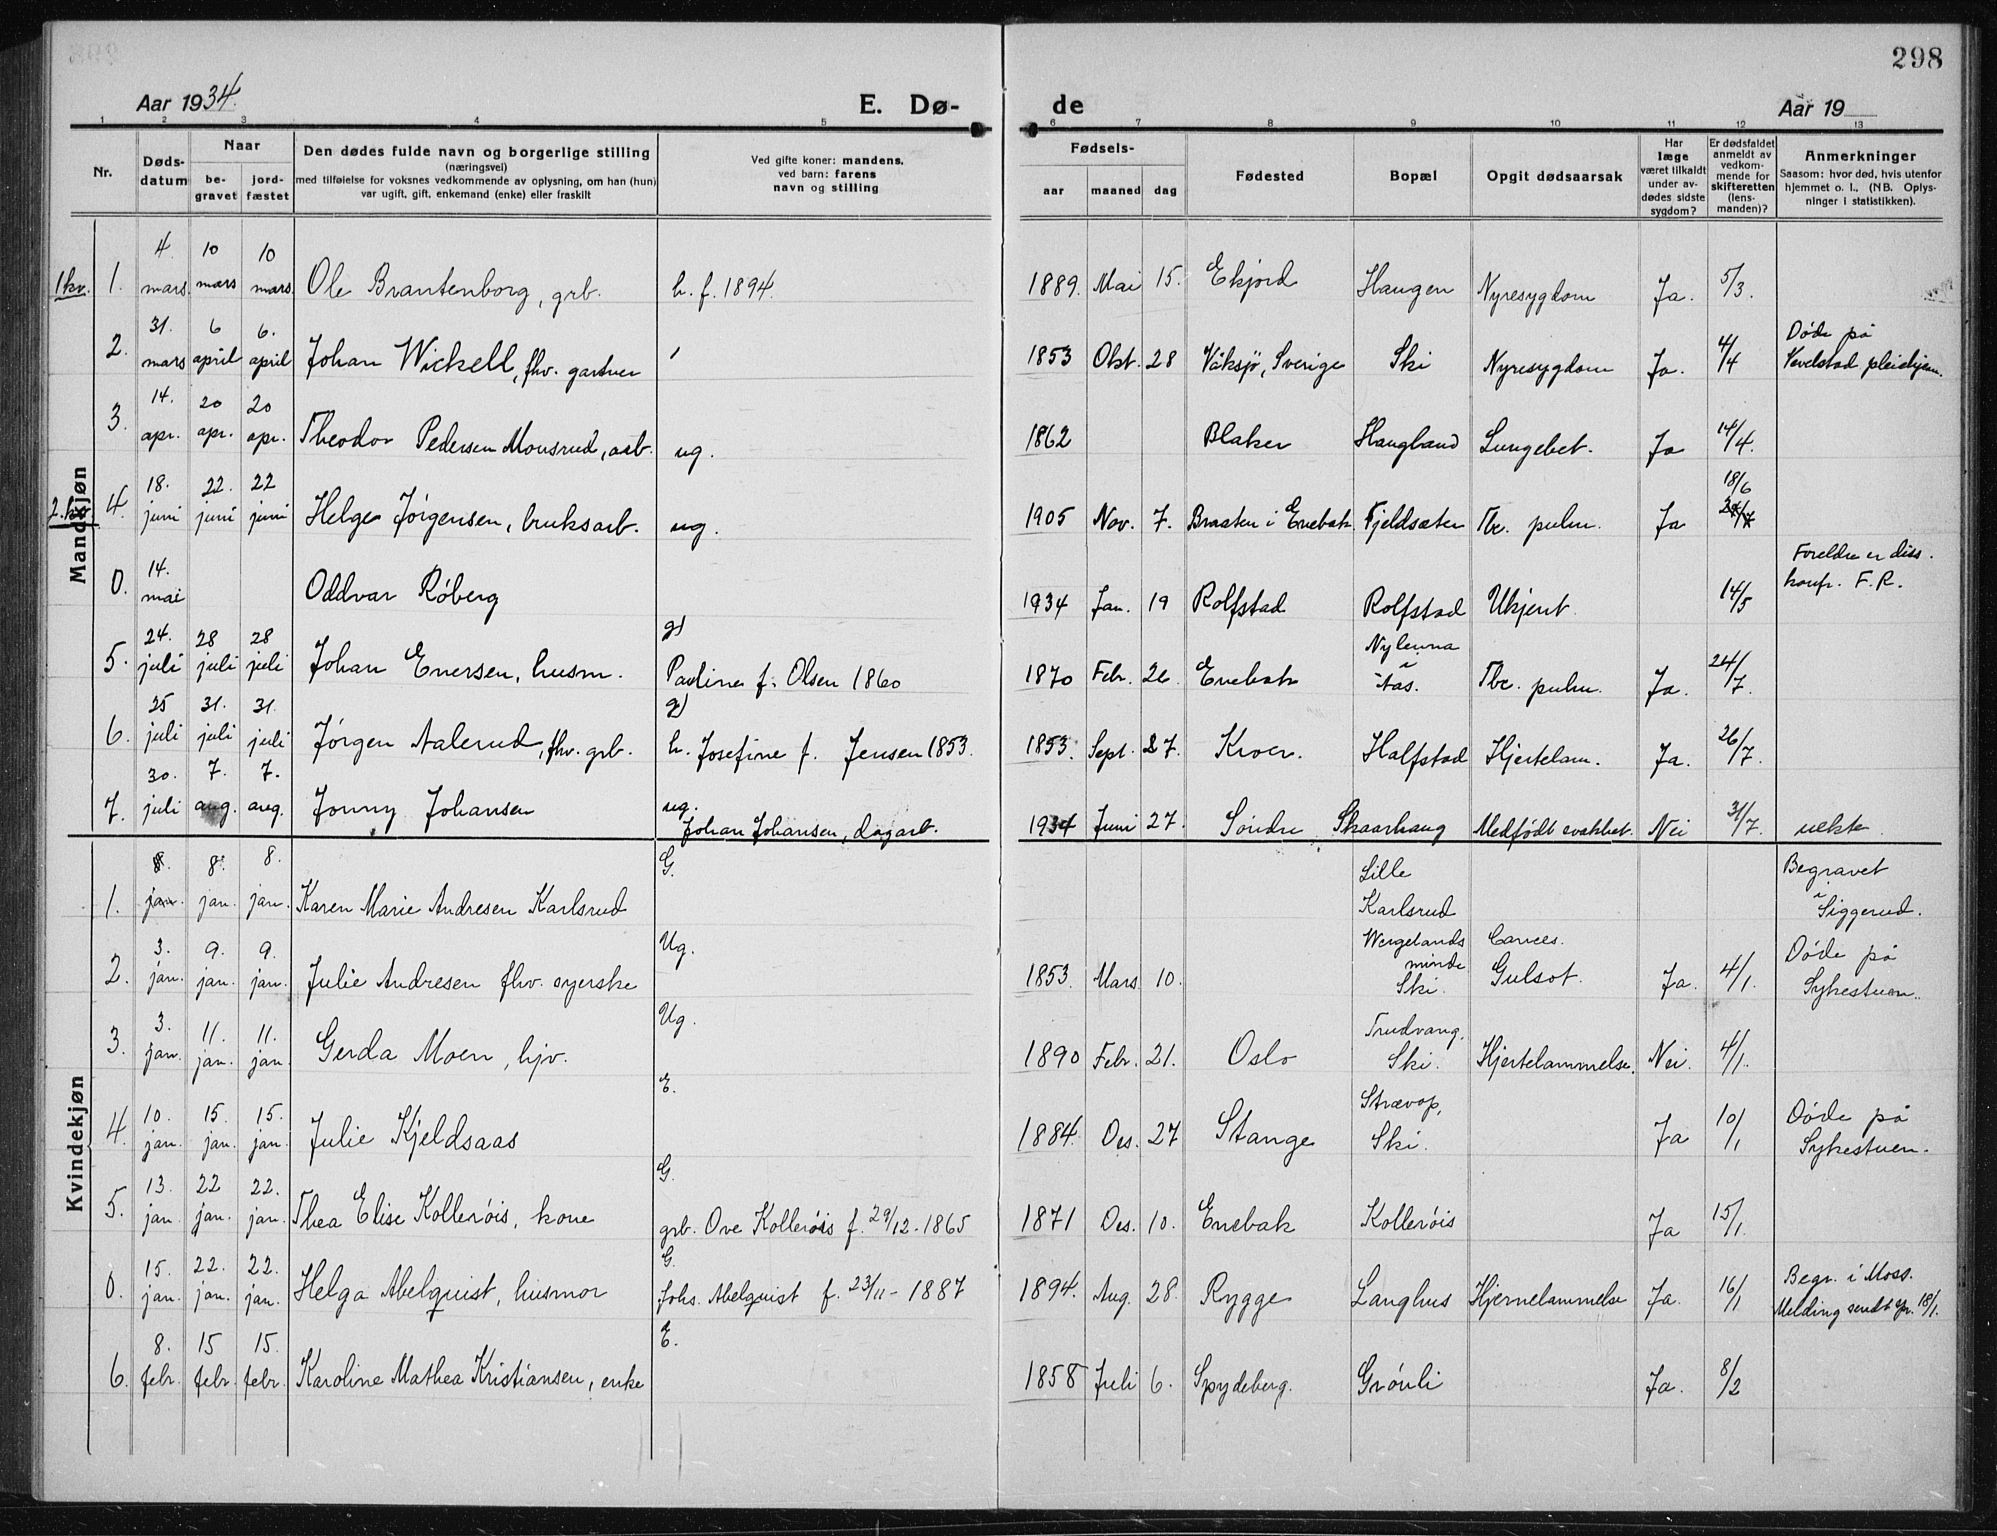 298
Aar 1934.
E. Dø- de
Aar 19
1 2 3 4 5 6 7 8 9 10 11 12 13
Nr.
Døds-datum
Naar
be-gravet
jord-fæstet
Den dødes fulde navn og borgerlige stilling
(næringsvei)
med tilføielse for voksnes vedkommende av oplysning, om han (hun)
var ugift, gift, enkemand (enke) eller fraskilt
Ved gifte koner: mandens.
ved barn: farens
navn og stilling
Fødsels-
aar maaned dag
Fødested
Bopæl
Opgit dødsaarsak
Har læge været tilkaldt under av-dødes sidste sygdom?
Er dødsfaldet anmeldt av vedkom-mende for skifteretten (lens-manden)?
Anmerkninger
Saasom: hvor død, hvis utenfor hjemmet o. l., (NB. Oplys-ninger i statistikken).
Mandkjøn
1 kv. 1. 4. mars 10 mars 10 mars. Ole Brantenborg, grb. h. f. 1894. 1889. Mai 15. Ekjord Haugen Nyresygdom Ja. 5/3.
2. 31. mars 6 april 6. april Johan Wickell, fhv. gartner 1853 Okt. 28 Väksjö, Sverige Ski Nyresygdom Ja. 4/4 Døde på Vevelstad pleiehjem.
3. 14. apr. 20 apr. 20 apr. Theodor Pedersen Monsrud, arb. ug. 1862 Blaker Haugland Lungebet. Ja 14/4.
2. kv. 4. 18. juni 22. juni 22 juni Helge Jørgensen, bruksarb. ug. 1905 Nov. 7. Braaten i Enebak. Fjeldsæter Tbc. pulm. Ja 18/6
0. 14. mai Oddvar Røberg 1934 Jan. 19 Rolfstad Rolfstad Ukjent. 14/5 Foreldre er diss. konfr. F. R.
5. 24. juli 28 juli 28 juli Johan Enersen, husm. g) Pauline f. Olsen 1860 1870 Febr. 26 Enebak Nylenna i Aas. Tbc. pulm. Ja. 24/7.
6. 25 juli 31. juli 31. juli Jørgen Aalerud, fhv. grb. g) h. Josefine f. Jensen 1853. 1853. Sept. 27. Kroer. Halfstad Hjertelam. Ja. 26/7.
7. 30. juli 7. aug. 7. aug. Jonny Johansen ug. Johan Johansen, dagarb. 1934 Juni 27. Søndre Skaarhaug Medfødt svakhet. Nei 31/7. uekte.
Kvindekjøn
1. 8. jan. 8. jan. 8. jan. Karen Marie Andresen Karlsrud G. Lille Karlsrud Begravet i Siggerud.
2. 3. jan. 9. jan. 9. jan. Julie Andresen fhv. syerske Ug. 1853. Mars 10. Wergelands minde Ski. Cances. Gulsot. Ja. 4/1. Døde på Sykestuen.
3. 3. jan. 11. jan. 11. jan. Gerda Moen, hjv. Ug. 1890 Febr. 21. Oslo Trudvang, Ski. Hjertelammelse. Nei. 4/1.
4. 10. jan. 15. jan. 15. jan. Julie Kjeldsaas E. 1884. Des. 27 Stange Strævop, Ski. Ja 10/1 Døde på Sykestuen.
5. 13. jan. 22 jan. 22. jan. Thea Elise Kollerøis, kone G. grb. Ove Kollerøis f. 29/12-1865 1871 Des. 10. Enebak Kollerøis Ja 15/1.
0. 15. jan. 22. jan. 22. jan. Helga Abelquist, husmor G. Johs. Abelquist f. 23/11-1887 1894. Aug. 28. Rygge Langhus Hjernelammelse Ja. 16/1 Begr. i Moss. Melding sendt spr. 18/1.
6. 8. febr. 15 febr. 15. febr. Karoline Mathea Kristiansen, enke E. 1858 Juli 6. Spydeberg. Grønli Ja. 8/2